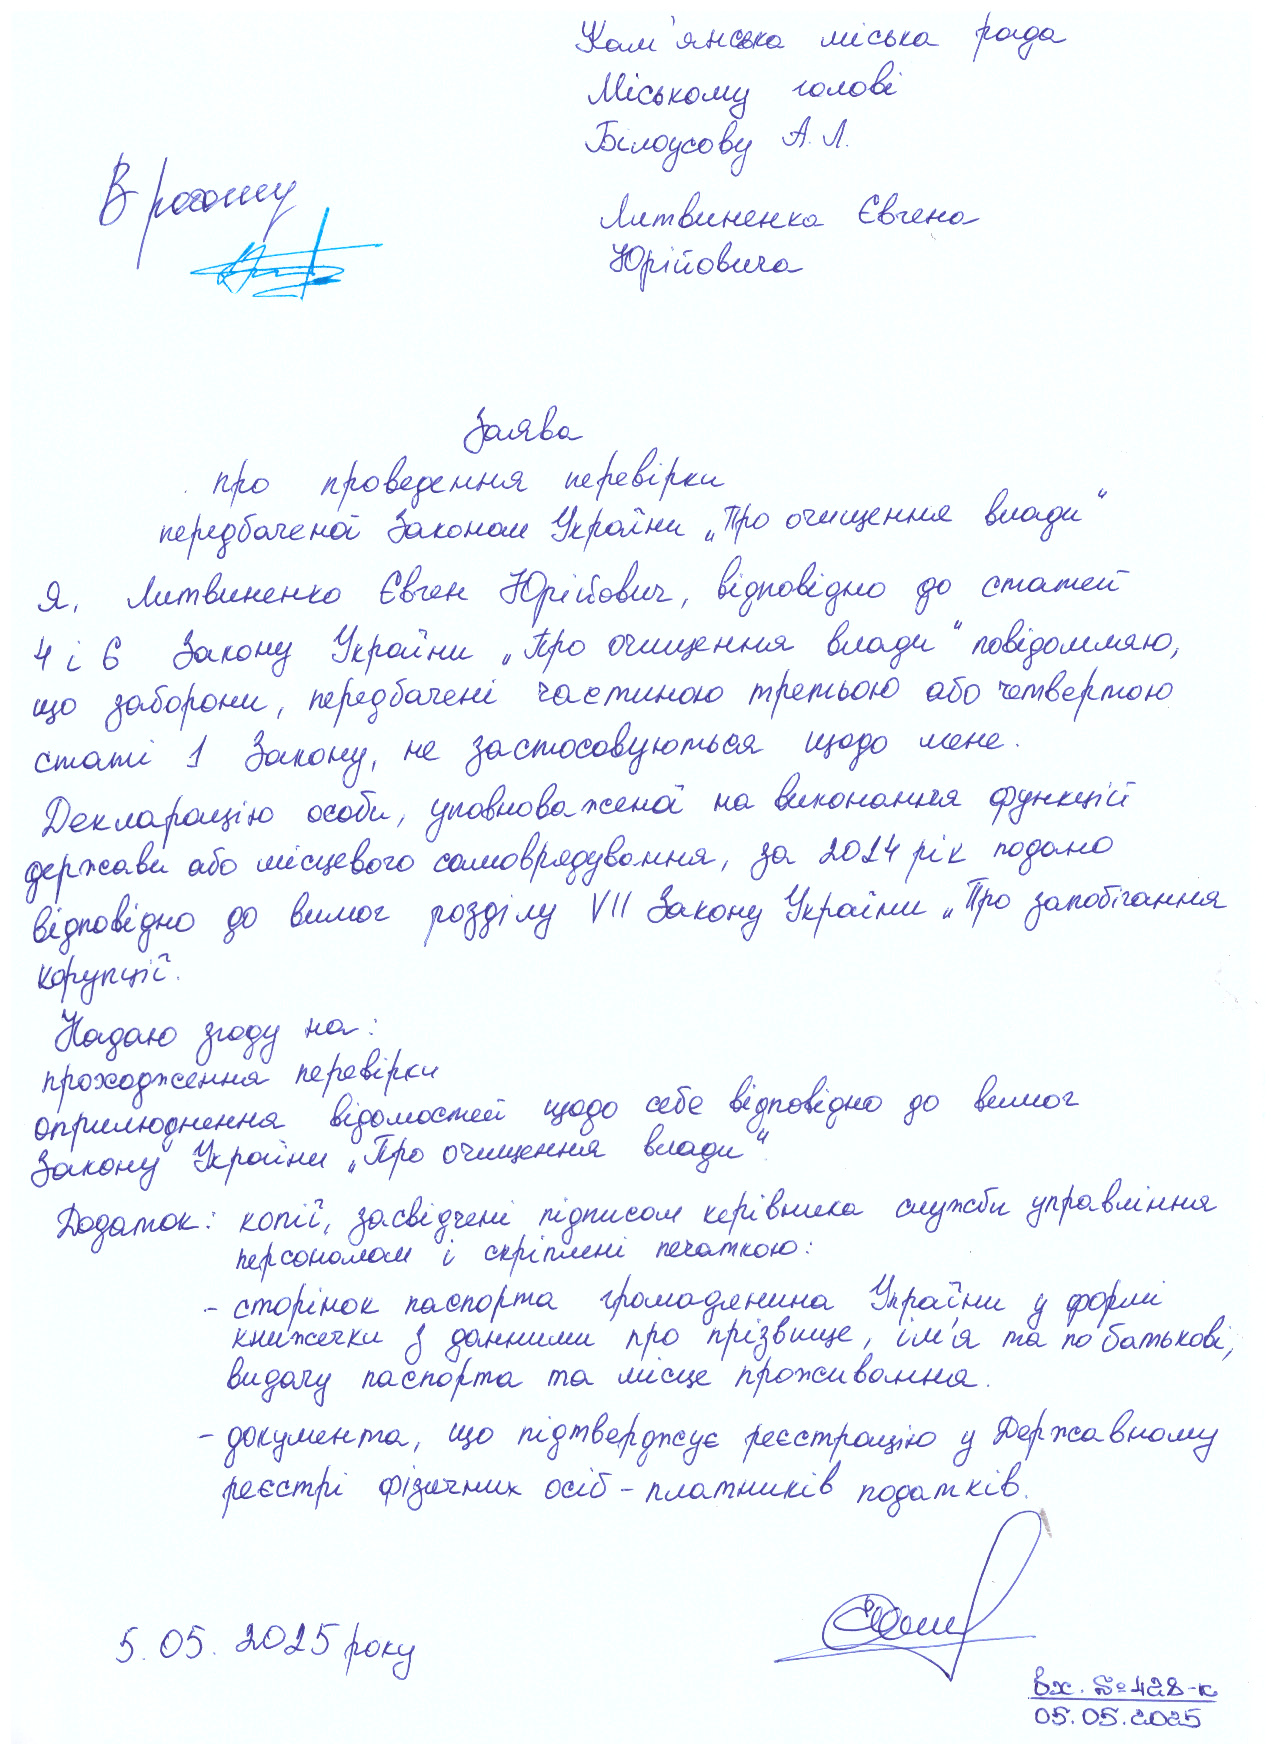 Кам'янська міська рада
Міському голові
Білоусову А.Л.
В роботу
Литвиненка Євгена
Юрійовича
Заява
про проведення перевірки
передбаченої Законом України „Про очищення влади“
Я, Литвиненко Євген Юрійович, відповідно до статей
4 і 6 Закону України „Про очищення влади“ повідомляю,
що заборони, передбачені частиною третьою або четвертою
статі 1 Закону, не застосовуються щодо мене.
Декларацію особи, уповноваженої на виконання функцій
держави або місцевого самоврядування, за 2024 рік подано
відповідно до вимог розділу VII Закону України „Про запобігання
корупції.
Надаю згоду на:
проходження перевірки
оприлюднення відомостей щодо себе відповідно до вимог
Закону України „Про очищення влади“.
Додаток: копії, засвідчені підписом керівника служби управління
персоналом і скріплені печаткою:
- сторінок паспорта громадянина України у формі
книжечки з данними про прізвище, ім'я та по батькові,
видачу паспорта та місце проживання.
- документа, що підтверджує реєстрацію у Державному
реєстрі фізичних осіб - платників податків.
5.05.2025 року
Вх. № 428-к
05.05.2025